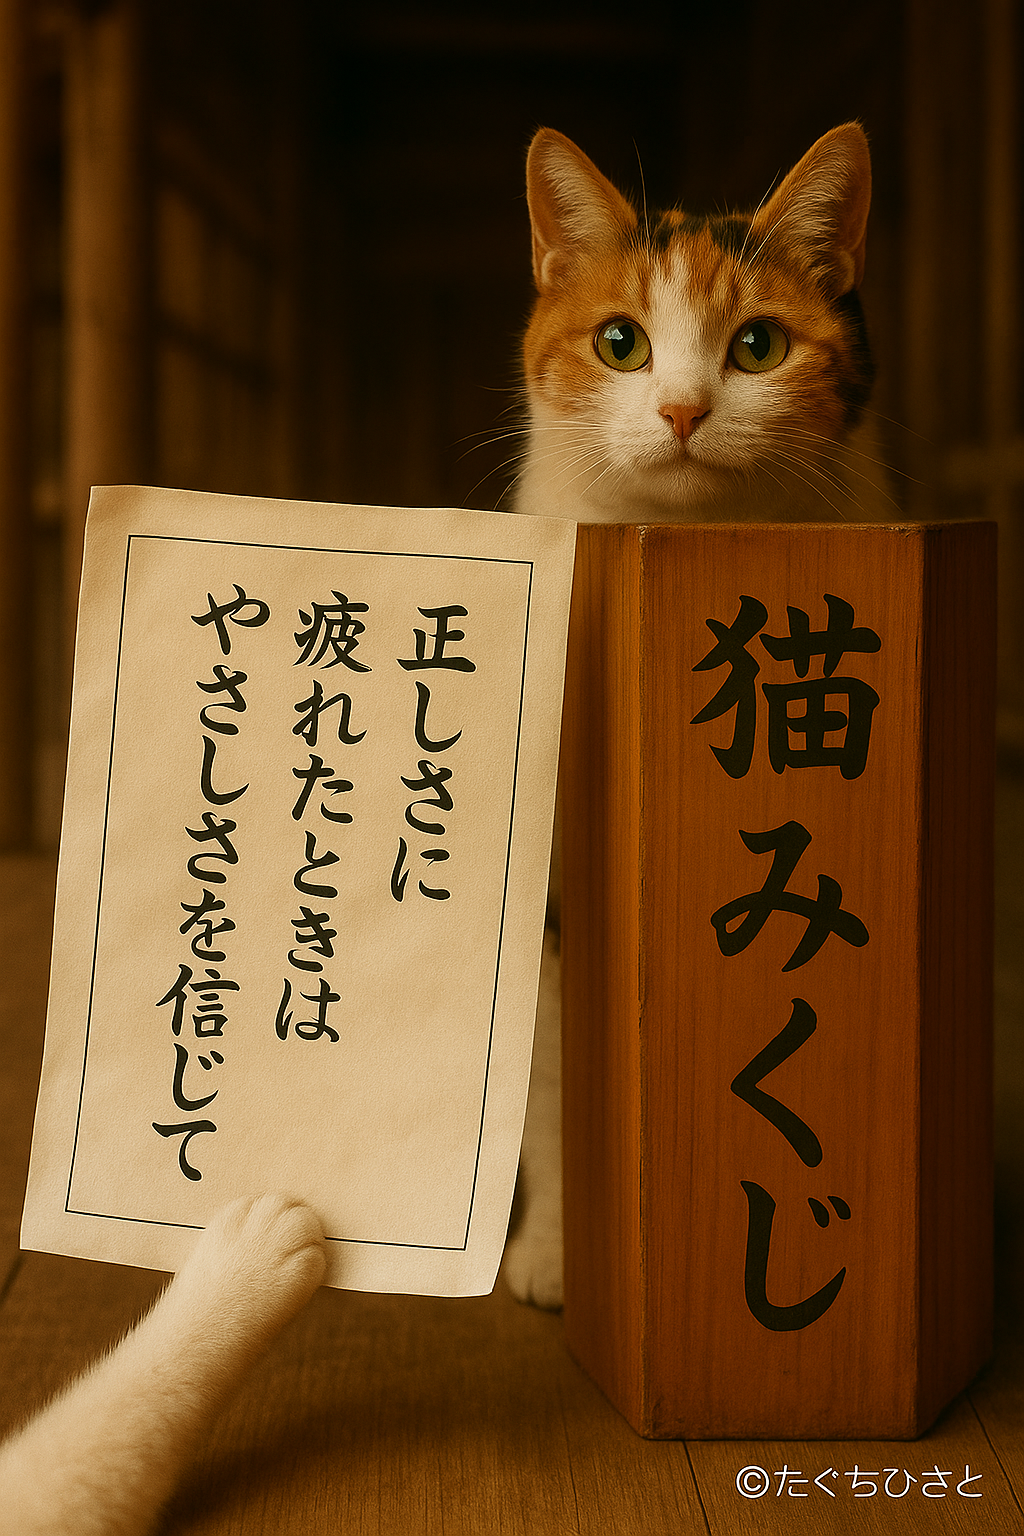 正しさに
疲れたときは
やさしさを信じて
猫みくじ
©たぐちひさと